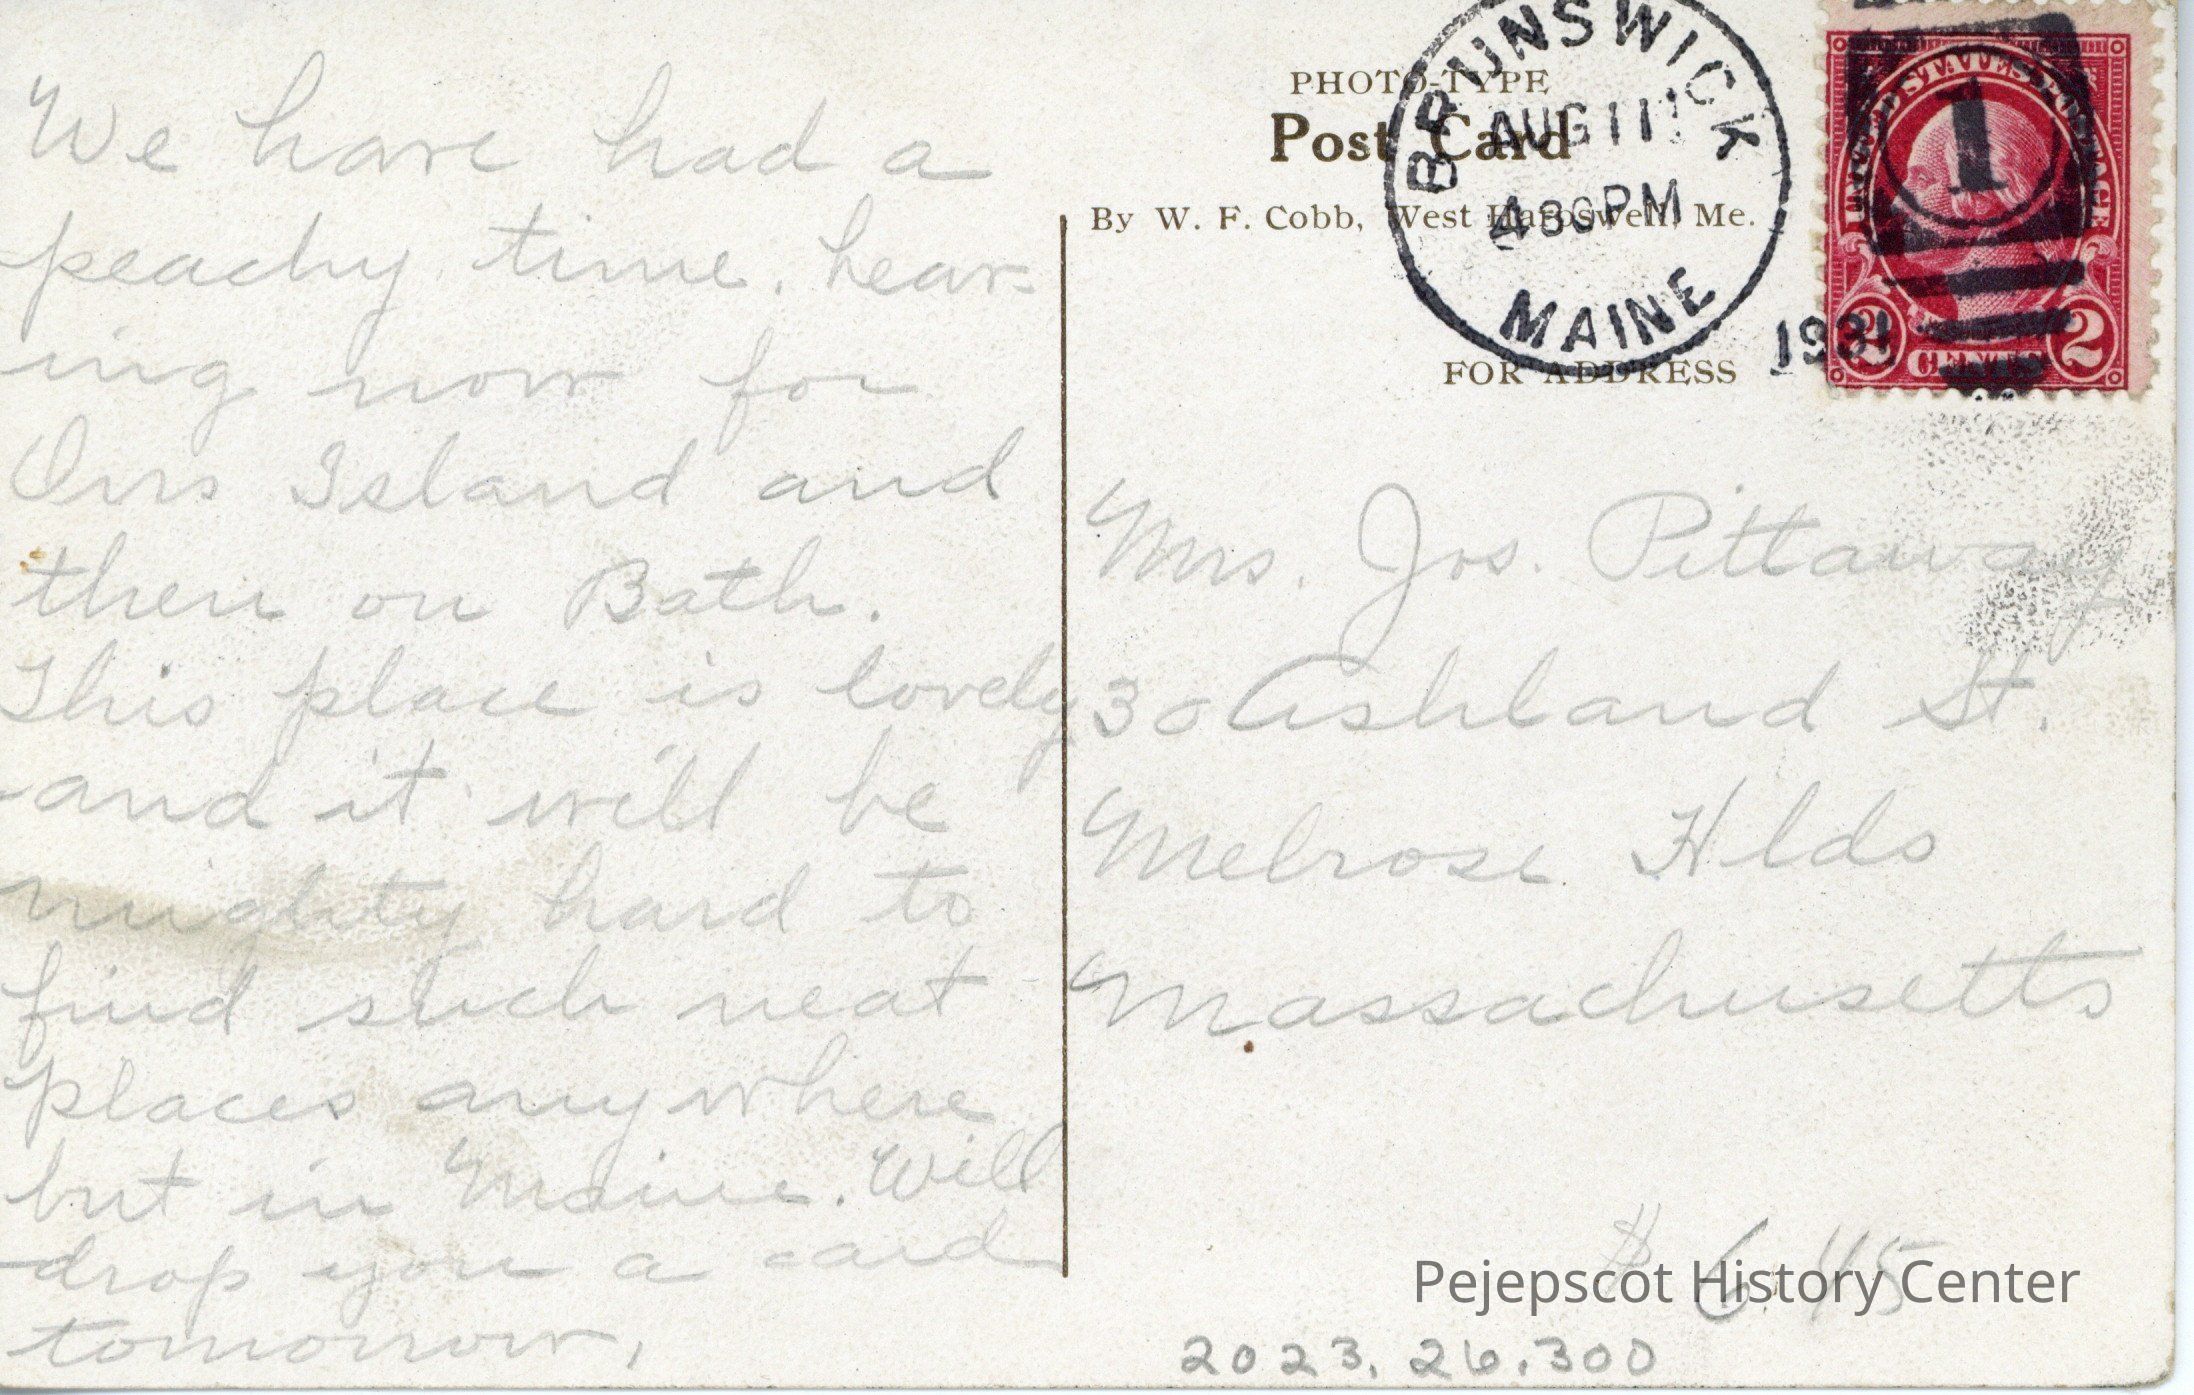 We have had a
peachy time. hear-
ing now for
Orrs Island and
then on Bath.
This place is lovely
and it will be
mighty hard to
find such neat
places anywhere
but in Maine. Will
drop you a card
tomorrow.
PHOTO-TYPE
Post Card
By W. F. Cobb, West Harpswell, Me.
FOR ADDRESS
BRUNSWICK
AUG 11
430PM
MAINE
1931
UNITED STATES POSTAGE
1
2 CENTS 2
Mrs. Jos. Pittaway
30 Ashland St.
Melrose Hlds
Massachusetts
$6.45
Pejepscot History Center
2023.26.300